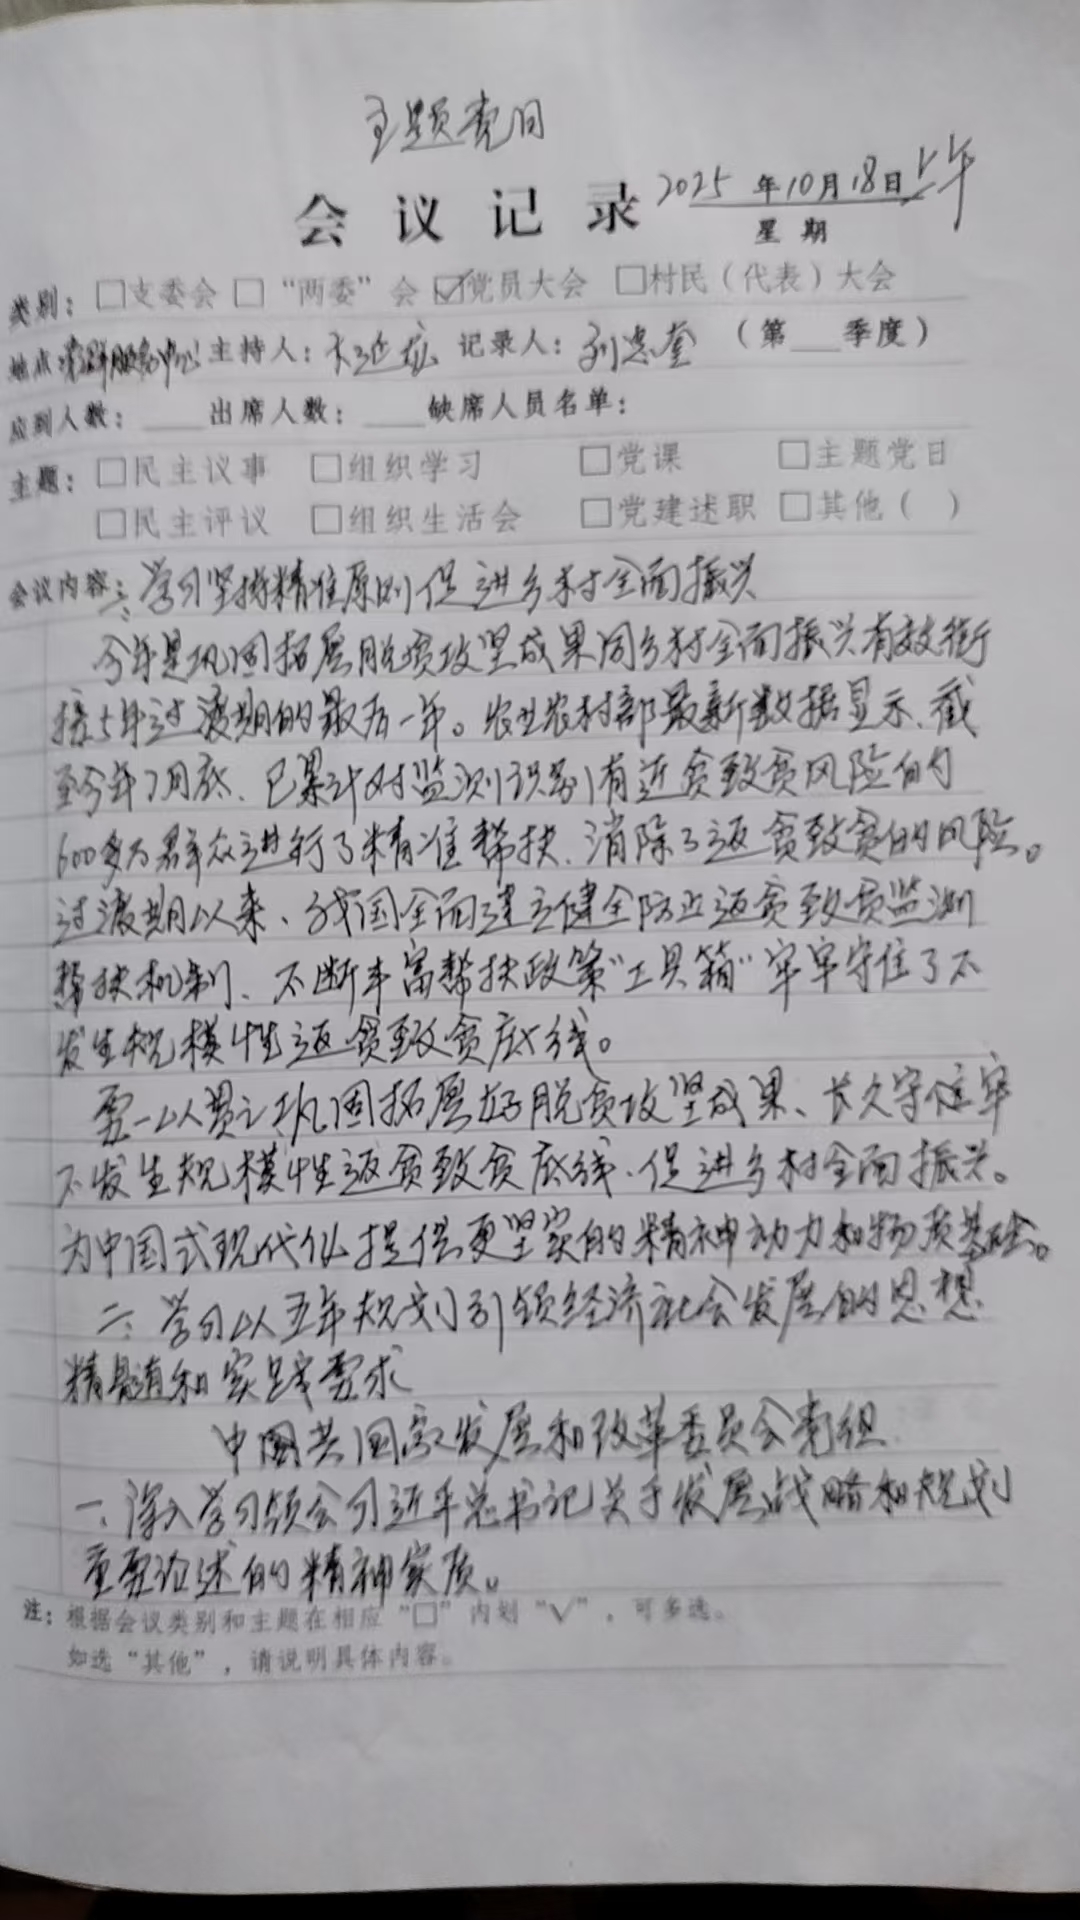 主题党日
会议记录 2025年10月18日上午
星期
类别：□支委会 □“两委”会 ☑党员大会 □村民（代表）大会
地点：党群服务中心 主持人： 记录人： （第___季度）
应到人数：____出席人数：____缺席人员名单：
主题：□民主议事 □组织学习 □党课 □主题党日
□民主评议 □组织生活会 □党建述职 □其他（ ）
会议内容：一、学习坚持精准原则促进乡村全面振兴
今年是巩固拓展脱贫攻坚成果同乡村全面振兴有效衔
接5年过渡期的最后一年。农业农村部最新数据显示、截
至今年7月底、已累计对监测识别有返贫致贫风险的
600多万名群众进行了精准帮扶、消除了返贫致贫的风险。
过渡期以来、我国全面建立健全防止返贫致贫监测
帮扶机制、不断丰富帮扶政策“工具箱”牢牢守住了不
发生规模性返贫致贫底线。
要一以贯之巩固拓展好脱贫攻坚成果、长久守住牢
不发生规模性返贫致贫底线、促进乡村全面振兴。
为中国式现代化提供更坚实的精神动力和物质基础。
二、学习以五年规划引领经济社会发展的思想
精髓和实践要求
中国共国家发展和改革委员会党组
一、深入学习领会习近平总书记关于发展战略和规划
重要论述的精神实质。
注：根据会议类别和主题在相应“□”内划“√”，可多选。
如选“其他”，请说明具体内容。